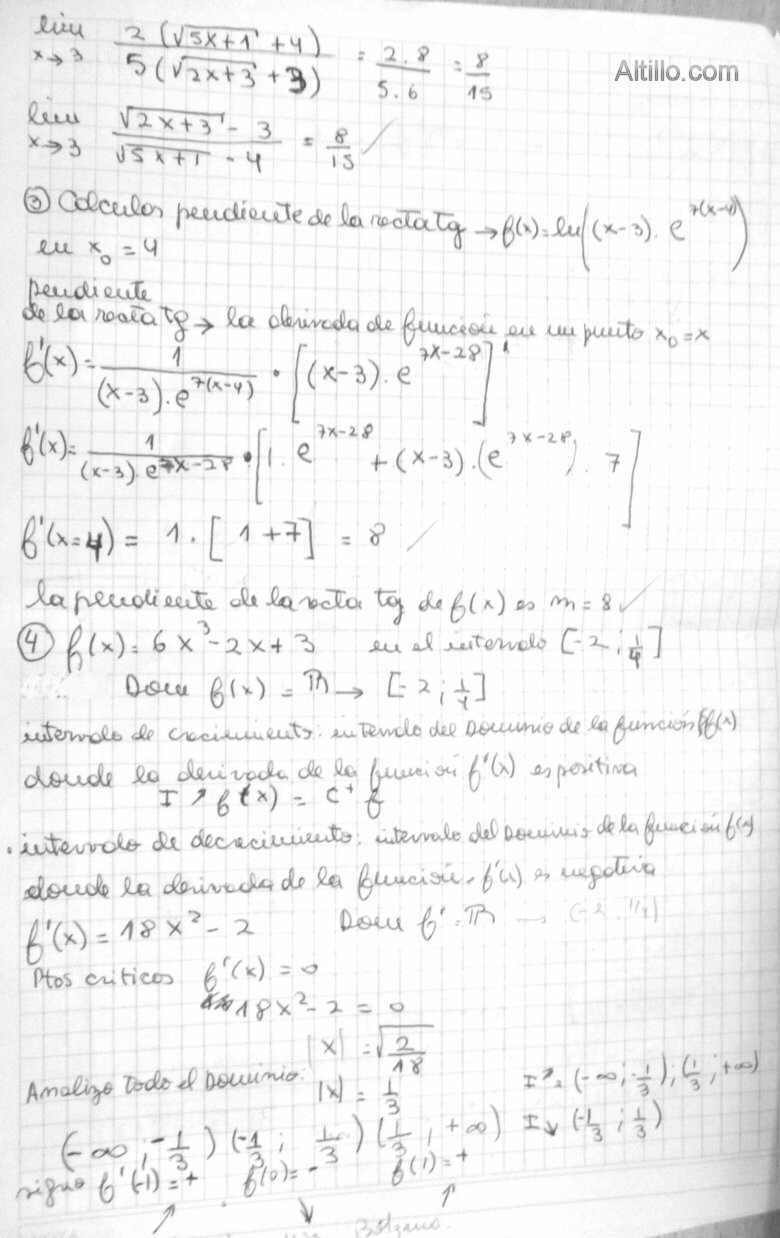 lim x→3 2 (√5x+1 + 4) / 5 (√2x+3 + 3) = 2.8 / 5.6 = 8/15
Altillo.com
lim x→3 √2x+3 - 3 / √5x+1 - 4 = 8/15 ✓
③ Calculos pendiente de la recta tg → f(x)=ln((x-3). e^7(x-4))
en x₀ = 4
pendiente
de la recta tg → la derivada de función en un punto x₀=x
f'(x)= 1 / (x-3).e^7(x-4) • [(x-3). e^7x-28]'
f'(x)= 1 / (x-3).e^7x-28 • [1. e^7x-28 + (x-3).(e^7x-28). 7]
f'(x=4) = 1. [1+7] = 8
la pendiente de la recta tg de f(x) es m=8 ✓
④ f(x)= 6x³-2x+3 en el intervalo [-2; 1/4]
Dom f(x) = ℝ → [-2; 1/4]
intervalo de crecimiento: intervalo del Dominio de la función f(x)
donde la derivada de la función f'(x) es positiva
I ↗ f(x) = C⁺ f
. intervalo de decrecimiento: intervalo del Dominio de la función f(x)
donde la derivada de la función, f'(x) es negativa
f'(x) = 18x² - 2 Dom f': ℝ
Ptos criticos f'(x) = 0
18x²-2 = 0
|x| = √2/18
Analizo todo el Dominio: |x| = 1/3 I↗= (-∞; -1/3); (1/3; +∞)
(-∞; -1/3) (-1/3; 1/3) (1/3; +∞) I↘ (-1/3; 1/3)
signo f'(-1)= + . f(0)= - f(1)= +
↗ ↘ ↗
Bolzano.